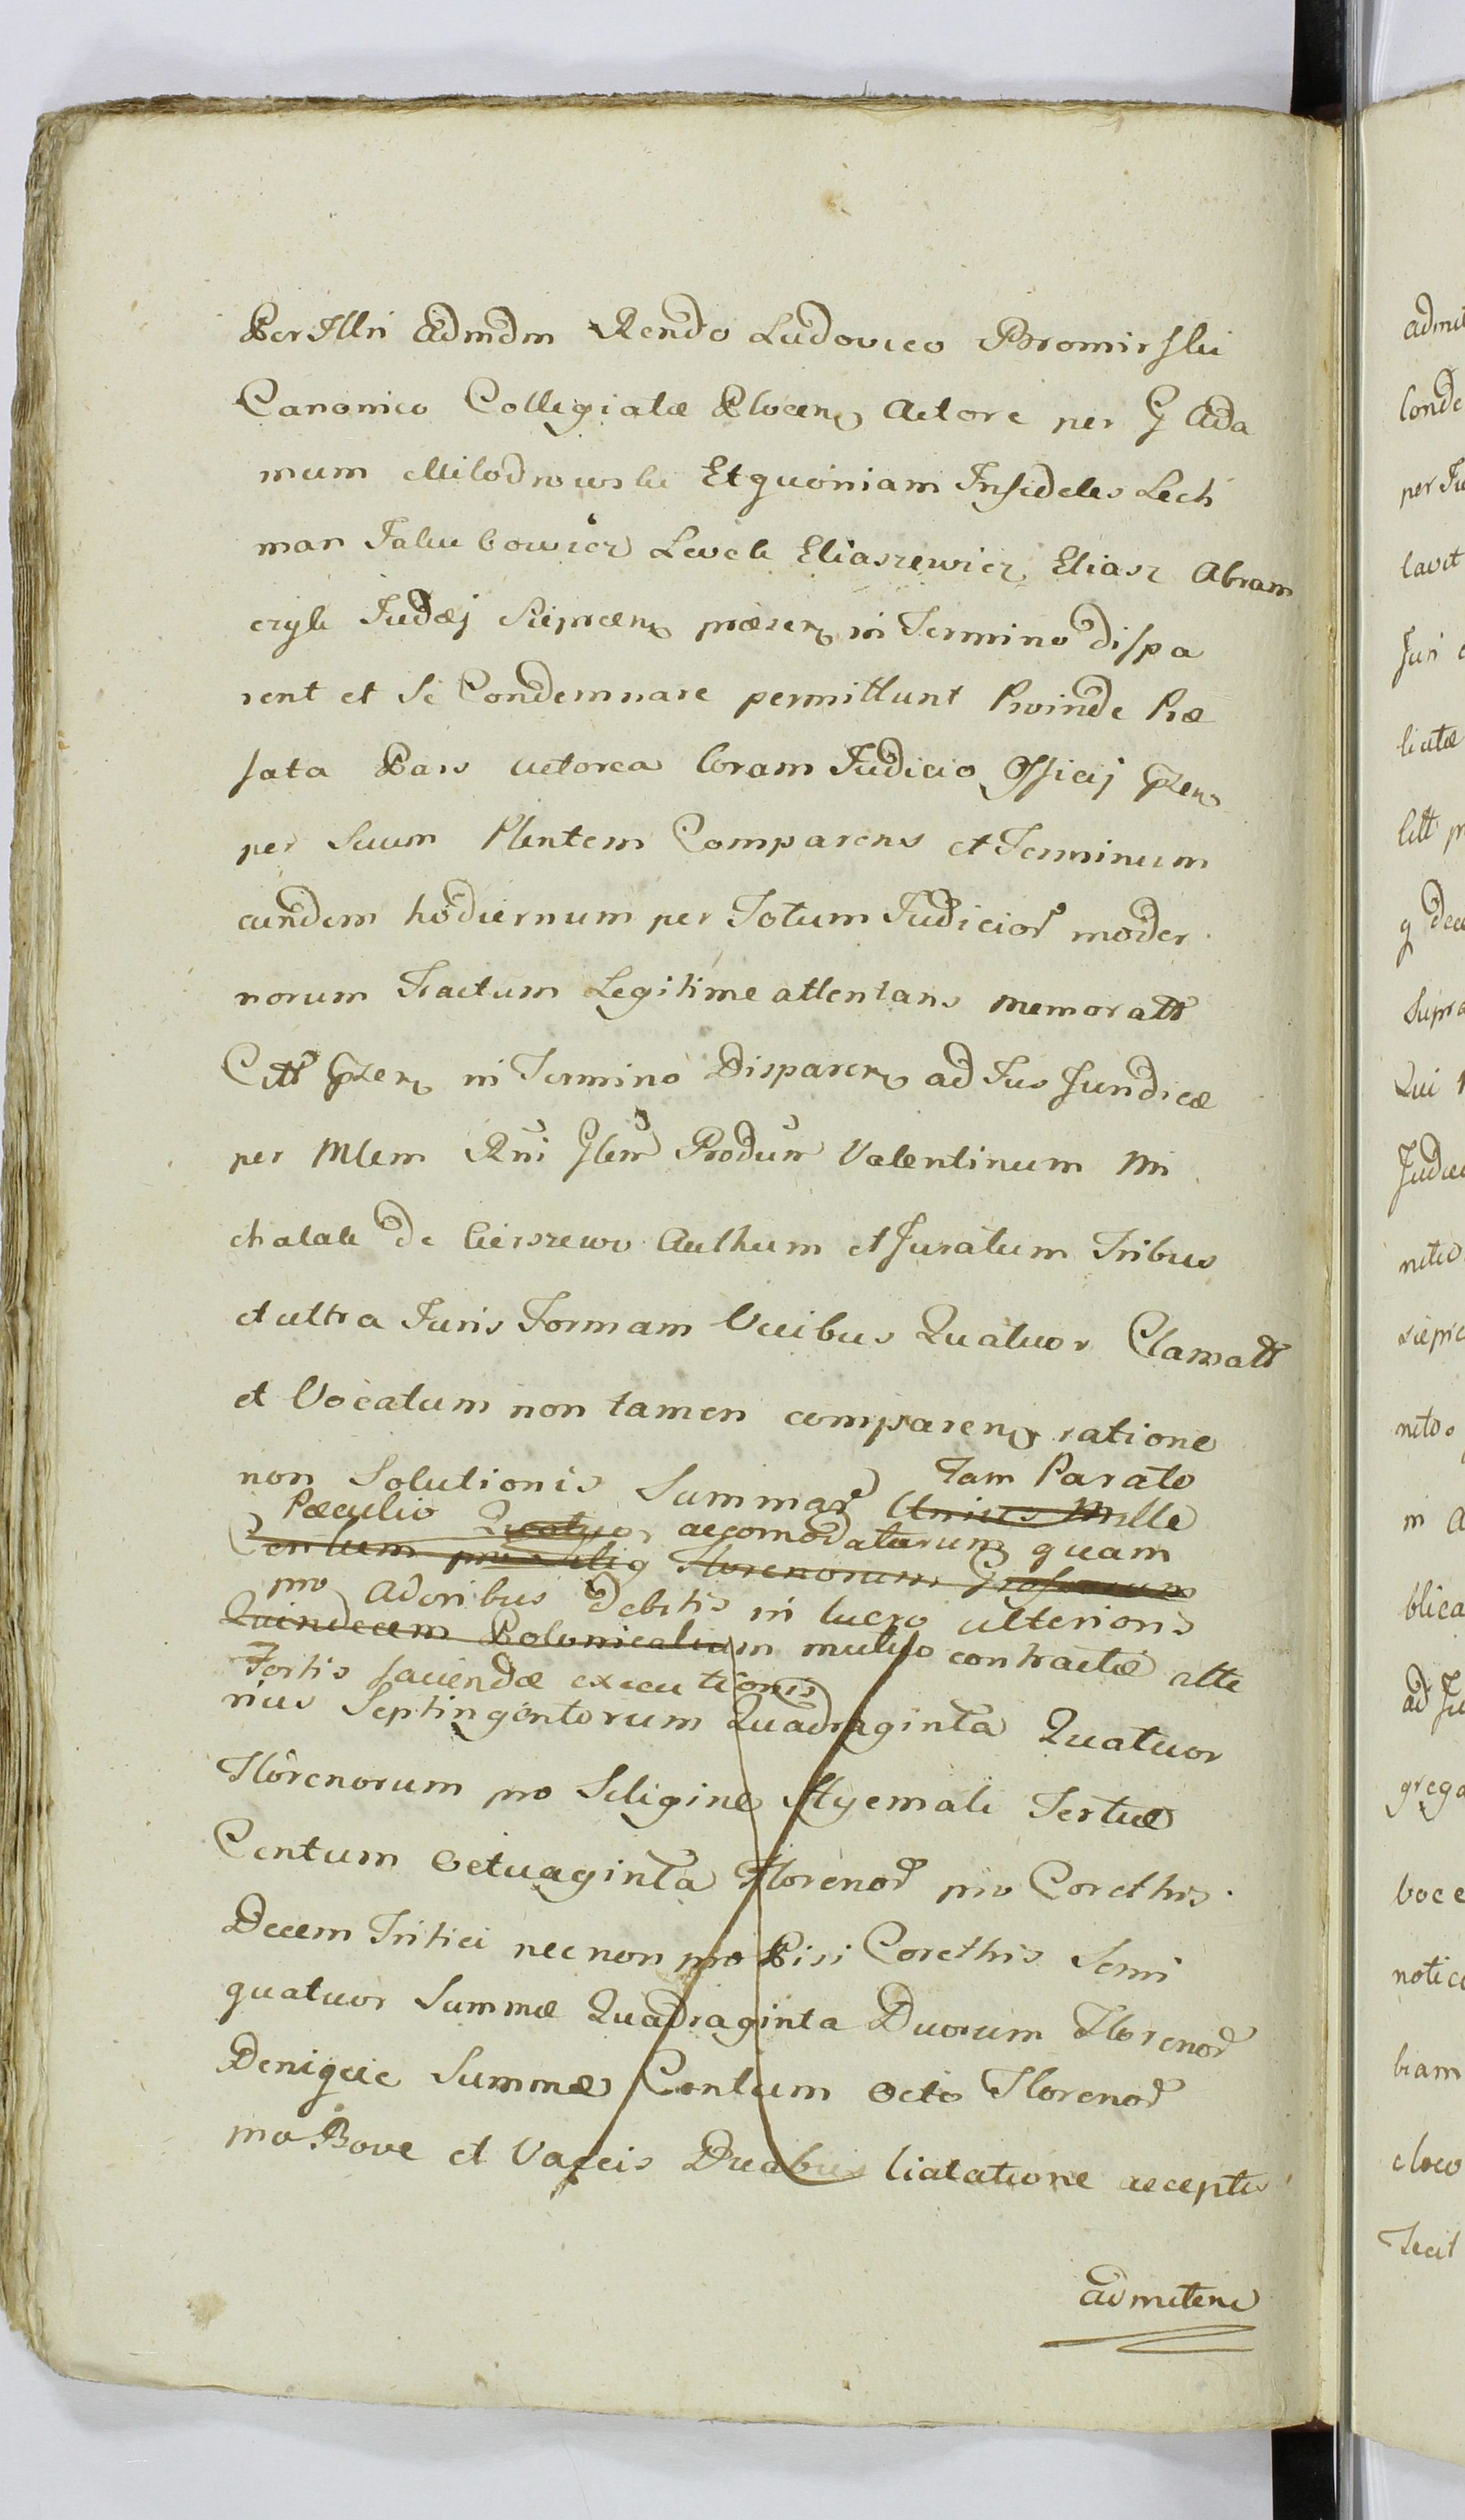 Per Illri Admdm Rendo Ludovico Bromirski
Canonico Collegiatæ Plocen Actore per G Ada
mum Milodrowski Et quoniam Infideles Lech
man Jakubowicz Lewek Eliaszewicz Eliasz Abram
czyk Judæj Sieprcen præsen in Termino dispa
rent et Se Condemnare permittunt Proinde Præ
fata Pars actorea Coram Judicio Officij Præn
per Suum Plentem Comparens et Terminum
eundem hodiernum per Totum Judicior moder
norum Tractum Legitime attentans memoratt
Citt Præn in Termino Disparen ad Jus Jundicæ
per Mlem Rni Glem Produm Valentinum Mi
chalak de Cierszewo Authum et Juratum Tribus
et ultra Juris Formam Vicibus Quatuor Clamatt
et Vocatum non tamen comparen ratione
non Solutionis Summar Unius Mille
Tam Parato
Pæculio Quatuor accomodatarum quam
Centum pro Florenorum Grossorum
pro Adoribus debitis in lucro ulterioris
Quindecem Polonicalium mutuo contractæ alte
Fortis faciendæ executionis
rius Septingentorum Quadraginta Quatuor
Florenorum pro Seligine Hyemali Tertiæ
Centum Octuaginta Florenor pro Corethis
Decem Tritici nec non pro Pisi Corethis Semi
quatuor Summæ Quadraginta Duorum Florenor
Denique Summæ Centum Octo Florenor
pro Bove et Vaccis Duabus licitatione acceptis
admitene
admit
Conde
per Ju
cavit
Juri
licitæ
litt
g dec
Supra
Qui
Judici
sieprc
m a
blica
ad Ju
grega
voce
notic
biam
cloco
Fecit